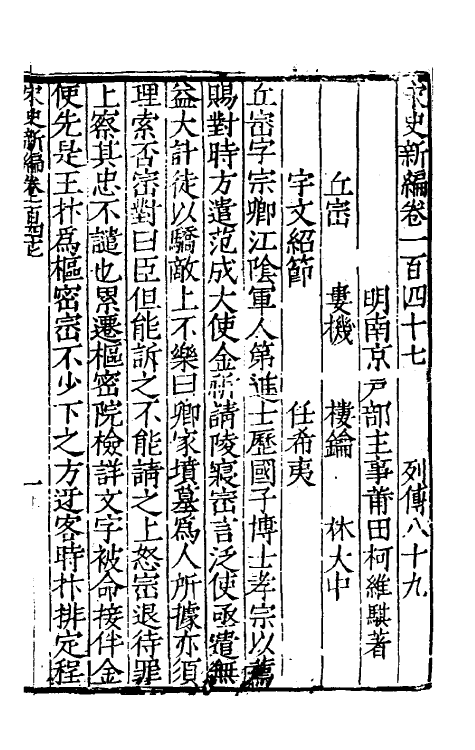 宋史新編卷一百四十七　　列傳八十九
明南京戶部主事莆田柯維騏著
丘崈　婁機　樓鑰　林大中
宇文紹節　任希夷
丘崈字宗卿江陰軍人第進士歷國子博士孝宗以薦
賜對時方遣范成大使金祈請陵寢崈言泛使亟遣無
益大計徒以驕敵上不樂曰卿家墳墓爲人所據亦須
理索否崈對曰臣但能訴之不能請之上怒崈退待罪
上察其忠不譴也累遷樞密院檢詳文字被命接伴金
使先是王抃爲樞密崈不少下之方迓客時抃排定程
宋史新編卷一百四七
一